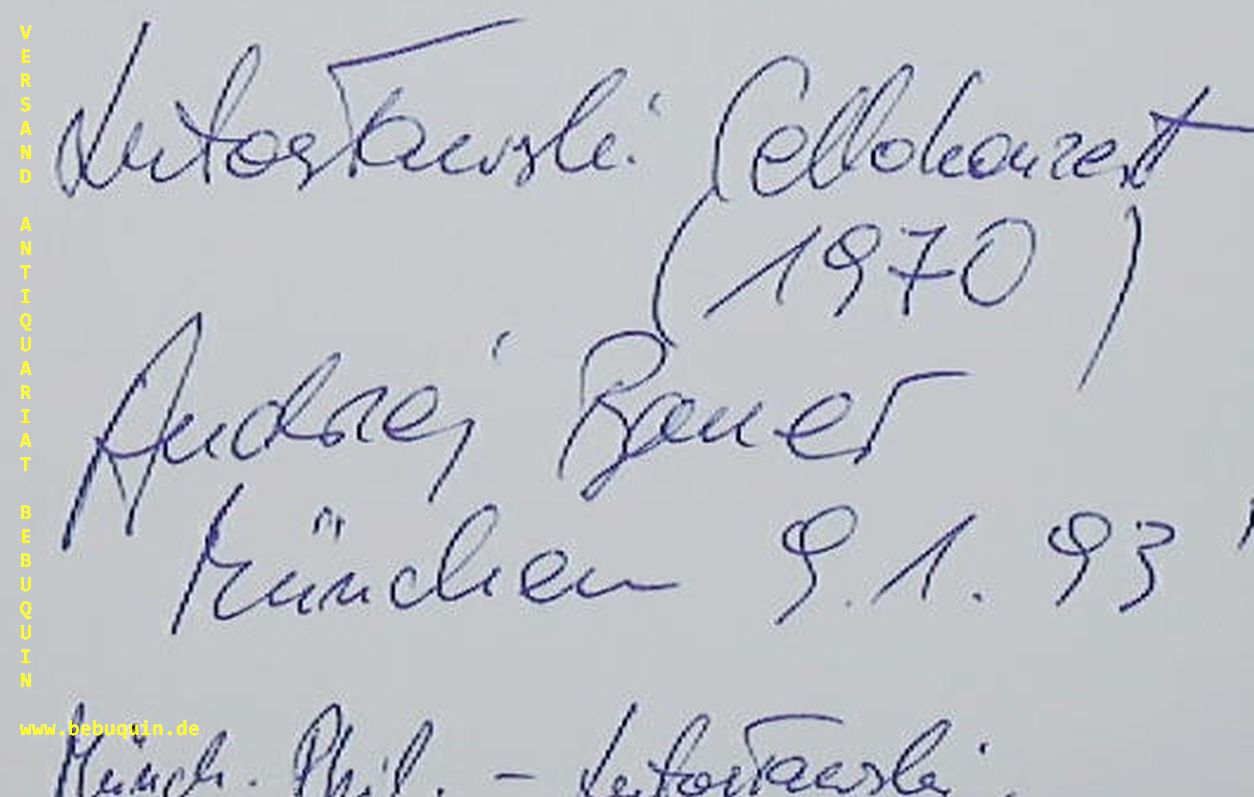 Lutosławski: Cellokonzert
(1970)
Andrzej Bauer
München 9.1.93
Münch. Phil. – Lutosławski,
VERSAND ANTIQUARIAT BEBUQUIN
www.bebuquin.de